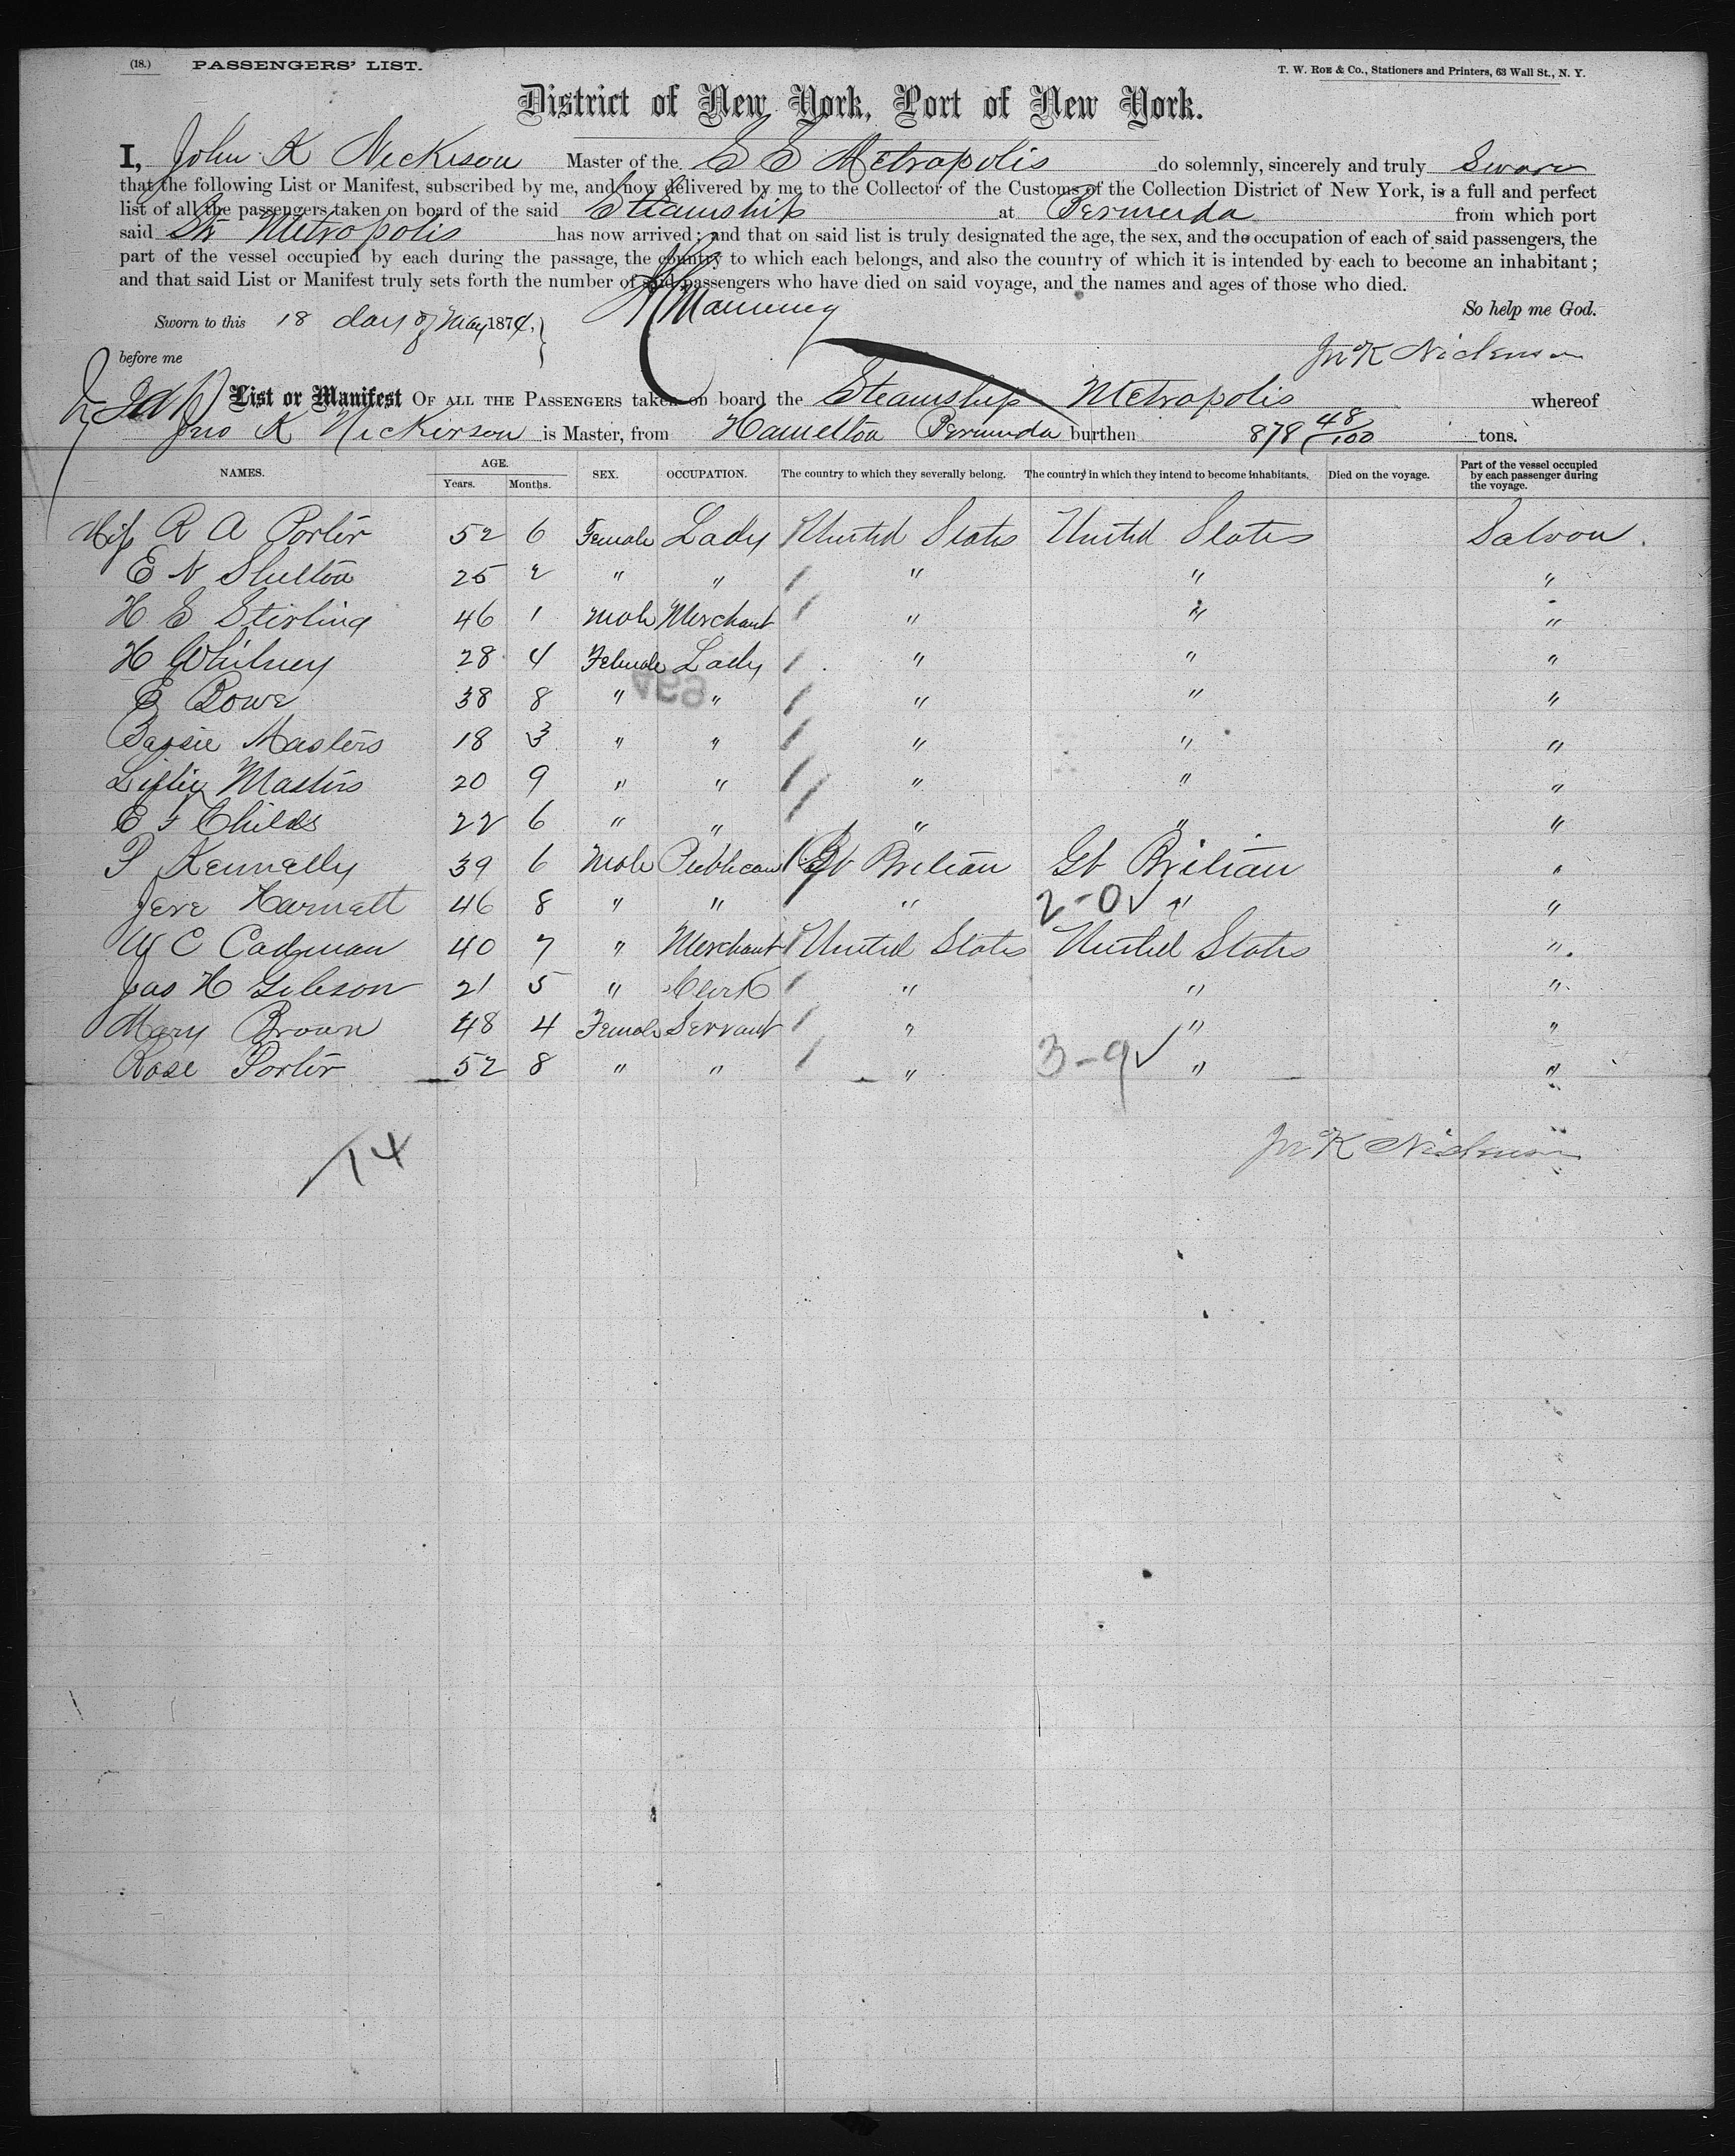 (18.) PASSENGERS' LIST. T. W. ROE & Co., Stationers and Printers, 63 Wall St., N. Y.
District of New York, Port of New York.
I, John K Nickerson Master of the S S Metropolis do solemnly, sincerely and truly Swear
that the following List or Manifest, subscribed by me, and now delivered by me to the Collector of the Customs of the Collection District of New York, is a full and perfect
list of all the passengers taken on board of the said Steamship at Bermuda from which port
said Str Metropolis has now arrived; and that on said list is truly designated the age, the sex, and the occupation of each of said passengers, the
part of the vessel occupied by each during the passage, the country to which each belongs, and also the country of which it is intended by each to become an inhabitant;
and that said List or Manifest truly sets forth the number of said passengers who have died on said voyage, and the names and ages of those who died.
Manning So help me God.
Sworn to this 18 day of May 1874,
before me Jno K Nickerson
List or Manifest OF ALL THE PASSENGERS taken on board the Steamship Metropolis whereof
Jno K Nickerson is Master, from Hamelton Bermuda burthen 878 48/100 tons.
NAMES. AGE. Years. Months. SEX. OCCUPATION. The country to which they severally belong. The country in which they intend to become inhabitants. Died on the voyage. Part of the vessel occupied by each passenger during the voyage.
R A Porter 52 6 Female Lady United States United States Saloon.
E N Shelton 25 2 " " " " "
H E Stirling 46 1 Male Merchant " " "
H Whitney 28 4 Female Lady " " "
E Rowe 38 8 " " " " "
Bassie Masters 18 3 " " " " "
Masters 20 9 " " " " "
E F Childs 22 6 " " " " "
P Kennelly 39 6 Male Publican Gt Britian Gt Britian "
Jere Harnett 46 8 " " " 2-0 ✓ " "
W C Cadman 40 7 " Merchant United States United States "
Jas H Gibson 21 5 " Clerk " " "
Mary Brown 48 4 Female Servant " " "
Rose Porter 52 8 " " " 3-9 ✓ " "
14 Jno K Nickerson